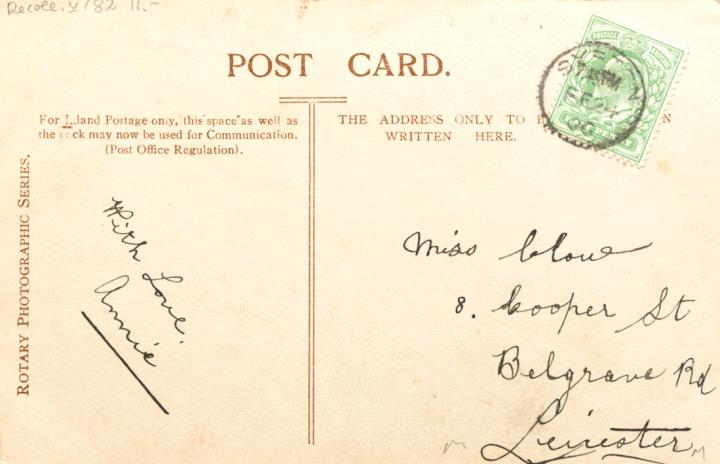 Recoll. 182 11.-
POST CARD.
For Inland Postage only, this space as well as
the back may now be used for Communication.
(Post Office Regulation).
THE ADDRESS ONLY TO BE WRITTEN HERE.
ROTARY PHOTOGRAPHIC SERIES.
With Love.
Annie
Miss Clow
8. Cooper St
Belgrave Rd
Leicester
POSTAGE